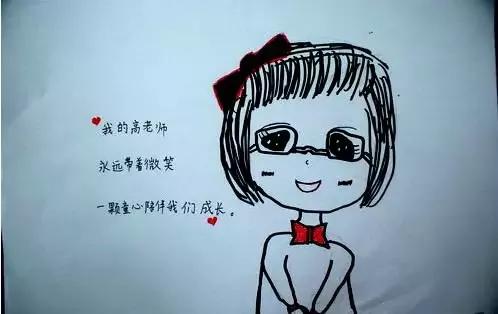 我的高老师
永远带着微笑
一颗童心陪伴我们成长。